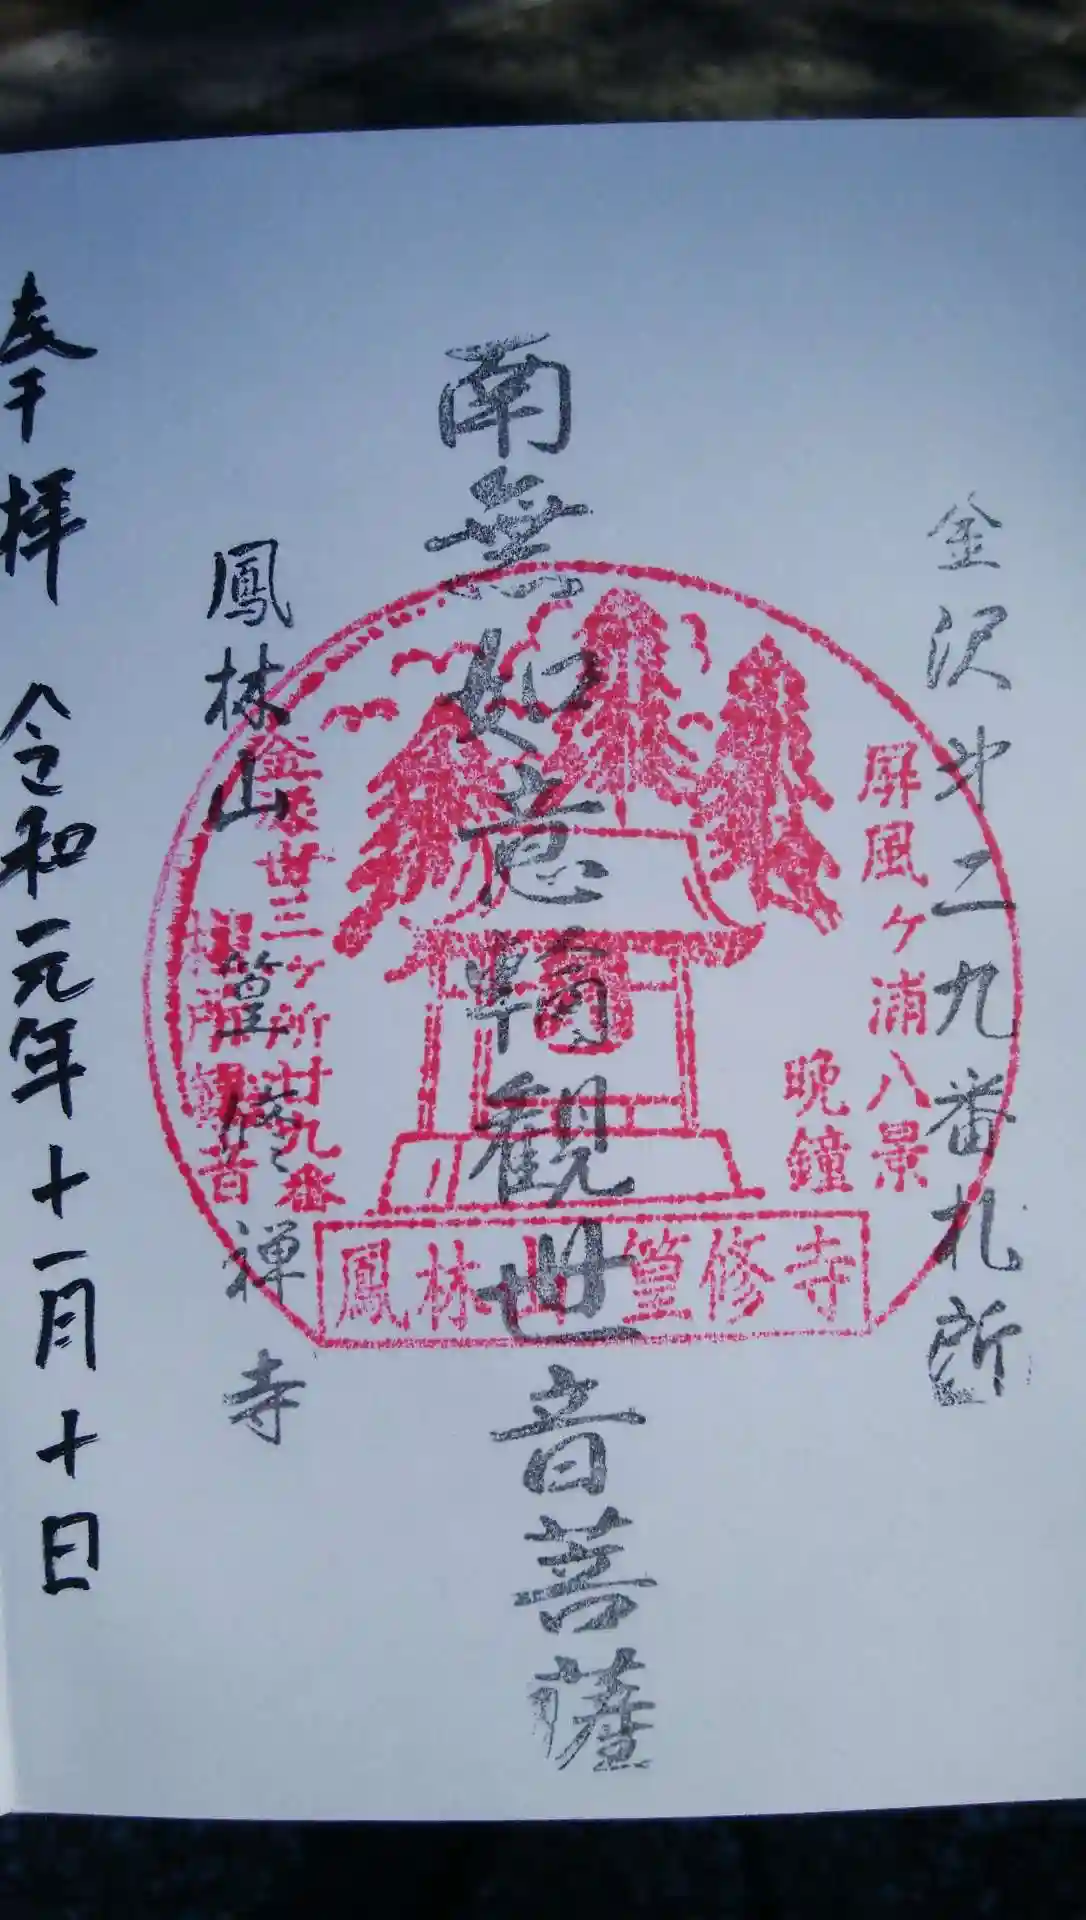 金沢㐧二九番札所
屏風ヶ浦八景
晩鐘
南無如意輪観世音菩薩
金沢世三ヶ所廿九番
観音
鳳林山篁修寺
鳳林山 篁修禅寺
奉拝 令和元年十一月十日